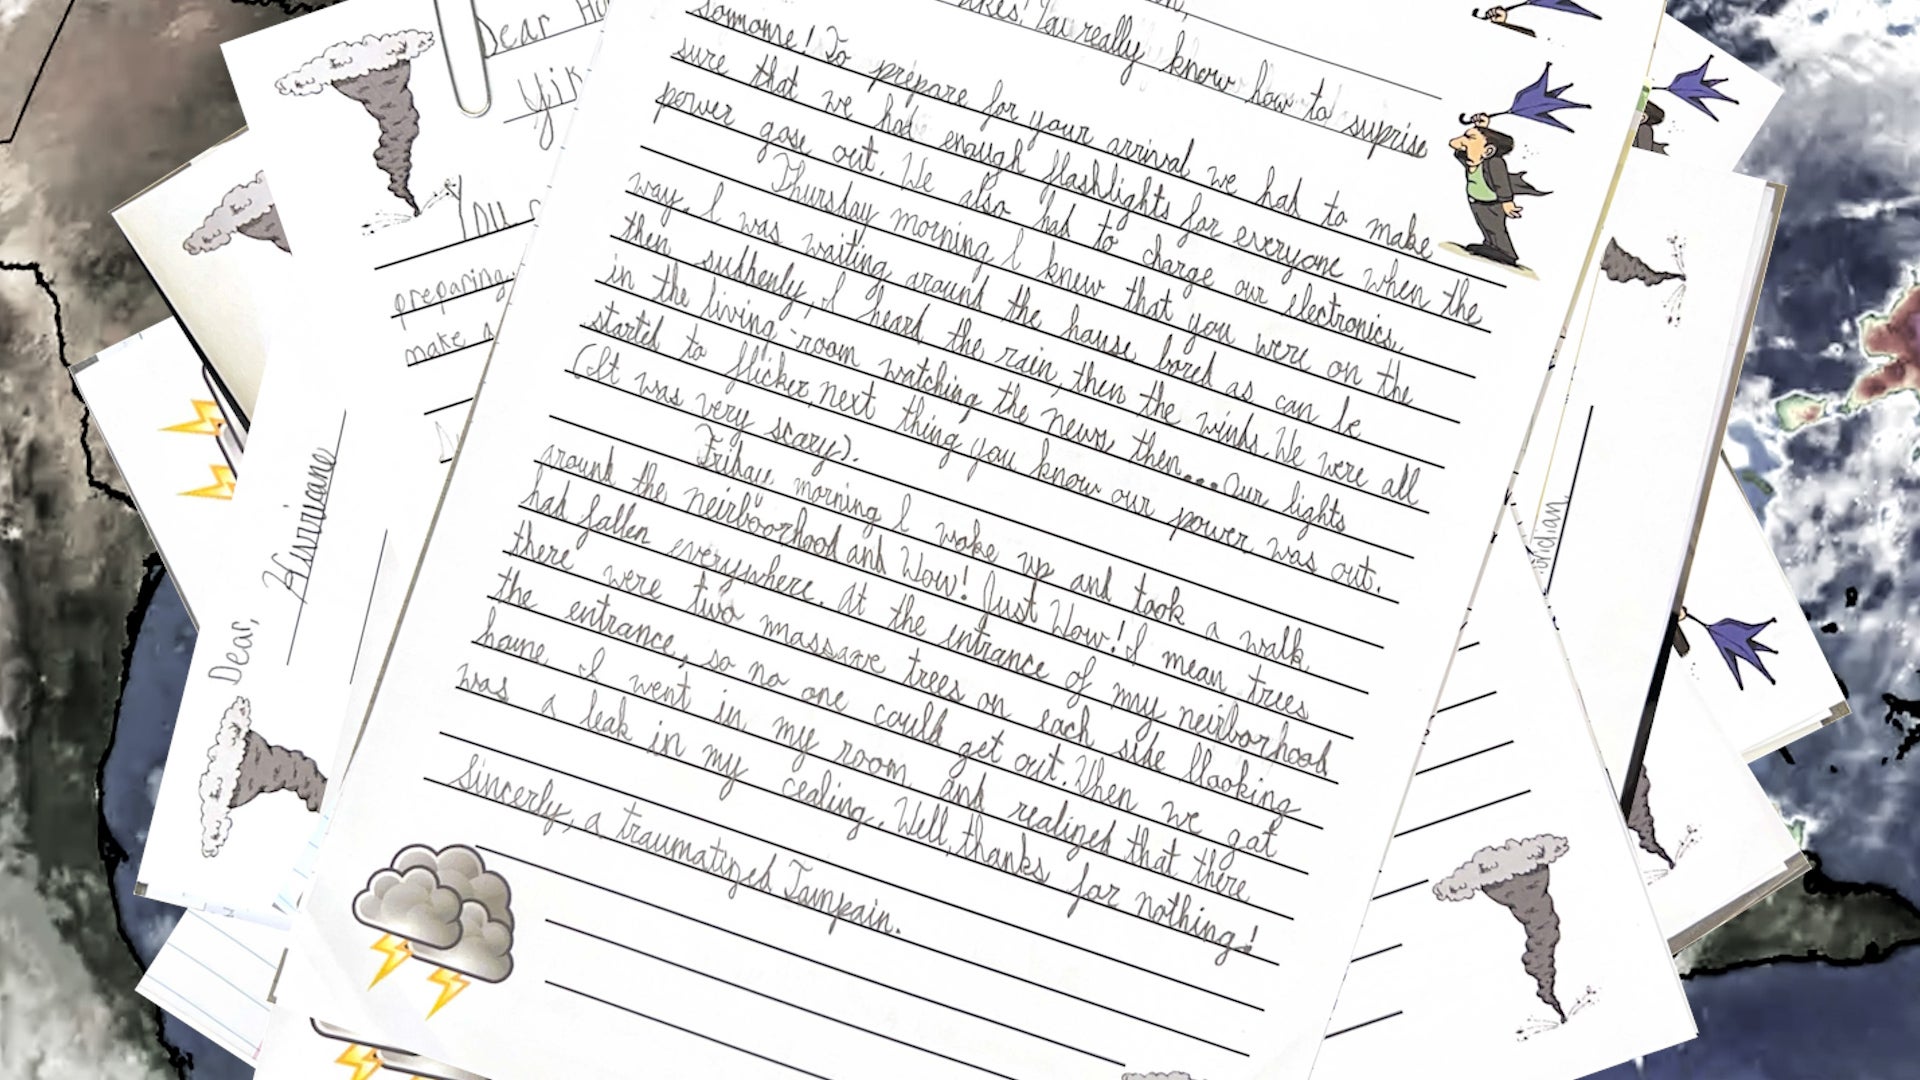 Yikes! You really know how to suprise
somone! To prepare for your arrival we had to make
sure that we had enough flashlights for everyone when the
power gose out. We also had to charge our electronics.
Thursday morning I knew that you were on the
way. I was waiting around the house bored as can be
then suddenly, I heard the rain, then the winds. We were all
in the living-room watching the news, then... Our lights
started to flicker, next thing you know our power was out.
(It was very scary).
Friday morning I woke up and took a walk
around the neirboorhood and Wow! Just Wow! I mean trees
had fallen everywhere. At the entrance of my neirborhood
there were two massave trees on each side blooking
the entrance, so no one could get out. When we got
home I went in my room and realized that there
was a leak in my cealing. Well, thanks for nothing!
Sincerly, a traumatized Tampain.
Dear
Yik
You
preparing,
make a
Dear,
Hurricane